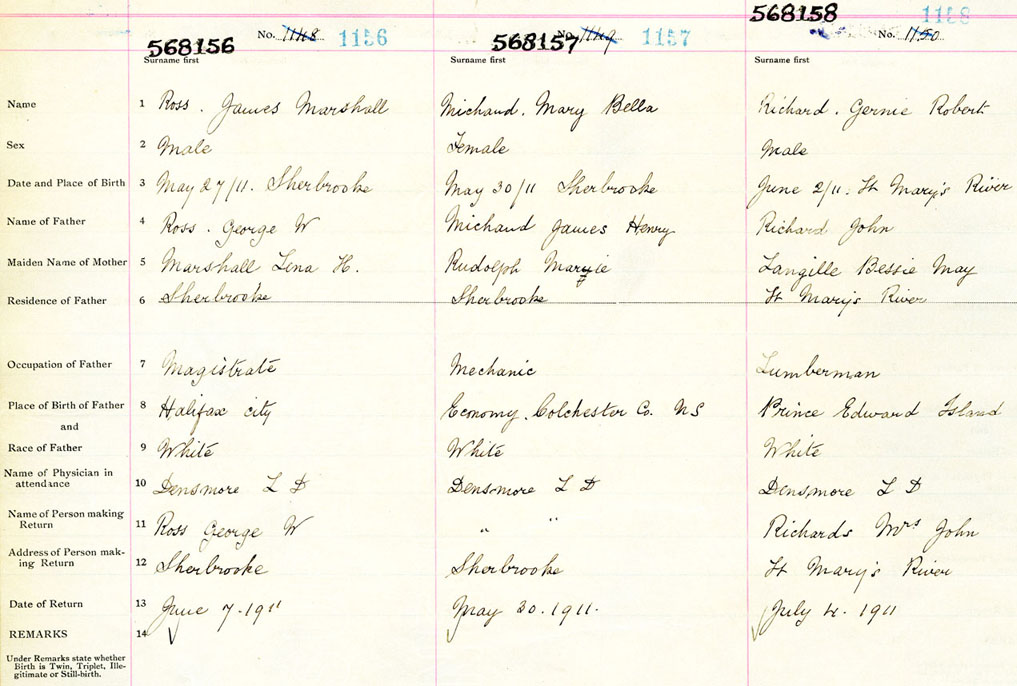 568156 No. 1148 1156 568157 No. 1149 1157 568158 No. 1150 1158
Surname first Surname first Surname first
Name 1 Ross. James Marshall Michaud, Mary Bella Richard, Gernie Robert
Sex 2 Male Female Male
Date and Place of Birth 3 May 27/11. Sherbrooke May 30/11 Sherbrooke June 2/11. St Mary's River
Name of Father 4 Ross. George W Michaud James Henry Richard John
Maiden Name of Mother 5 Marshall Lena H. Rudolph Langille Bessie May
Residence of Father 6 Sherbrooke Sherbrooke St Mary's River
Occupation of Father 7 Magistrate Mechanic Lumberman
Place of Birth of Father 8 Halifax city Economy, Colchester Co. NS Prince Edward Island
and
Race of Father 9 White White White
Name of Physician in
attendance 10 Densmore L D Densmore L D Densmore L D
Name of Person making
Return 11 Ross George W " " Richards Mrs John
Address of Person mak-
ing Return 12 Sherbrooke Sherbrooke St Mary's River
Date of Return 13 June 7-1911 May 30. 1911. July 4. 1911
REMARKS 14
Under Remarks state whether
Birth is Twin, Triplet, Ille-
gitimate or Still-birth.